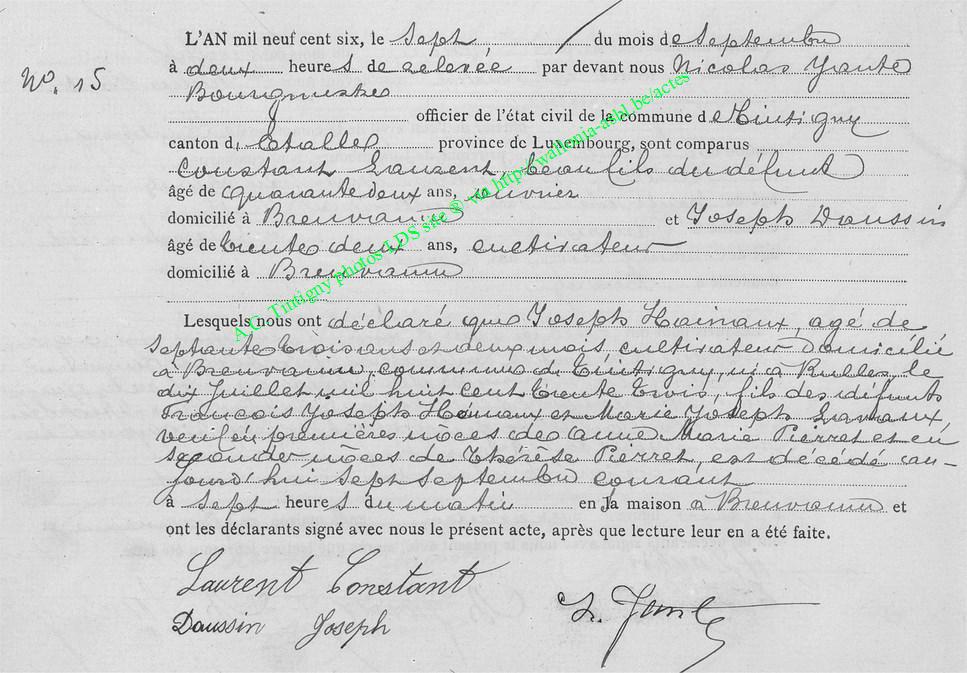 L'AN mil neuf cent six, le sept, du mois de Septembre
No. 15
à deux heures de relevée par devant nous Nicolas Yante
Bourgmestre
officier de l'état civil de la commune de Tintigny
canton d'Etalle province de Luxembourg, sont comparus
Constant Laurent, beau fils du défunt
âgé de quarante deux ans, ouvrier
domicilié à Breuvanne et Joseph Daussin
âgé de trente deux ans, cultivateur
domicilié à Breuvanne
A.C. Tintigny photos LDS site ® via http://wallonia-asbl.be/actes
Lesquels nous ont déclaré que Joseph Hainaux, agé de
septante trois ans et deux mois, cultivateur domicilié
à Breuvanne, commune de Tintigny, né à Rulles, le
dix Juillet mil huit cent trente trois, fils des défunts
François Joseph Hainaux et Marie Joseph Lavaux,
veuf en premières nôces de Anne Marie Pierret et en
secondes nôces de Thérèse Pierret, est décédé au-
jourd'hui sept Septembre courant
à sept heures du matin en sa maison à Breuvanne et
ont les déclarants signé avec nous le présent acte, après que lecture leur en a été faite.
Laurent Constant
Daussin Joseph
N. Yante